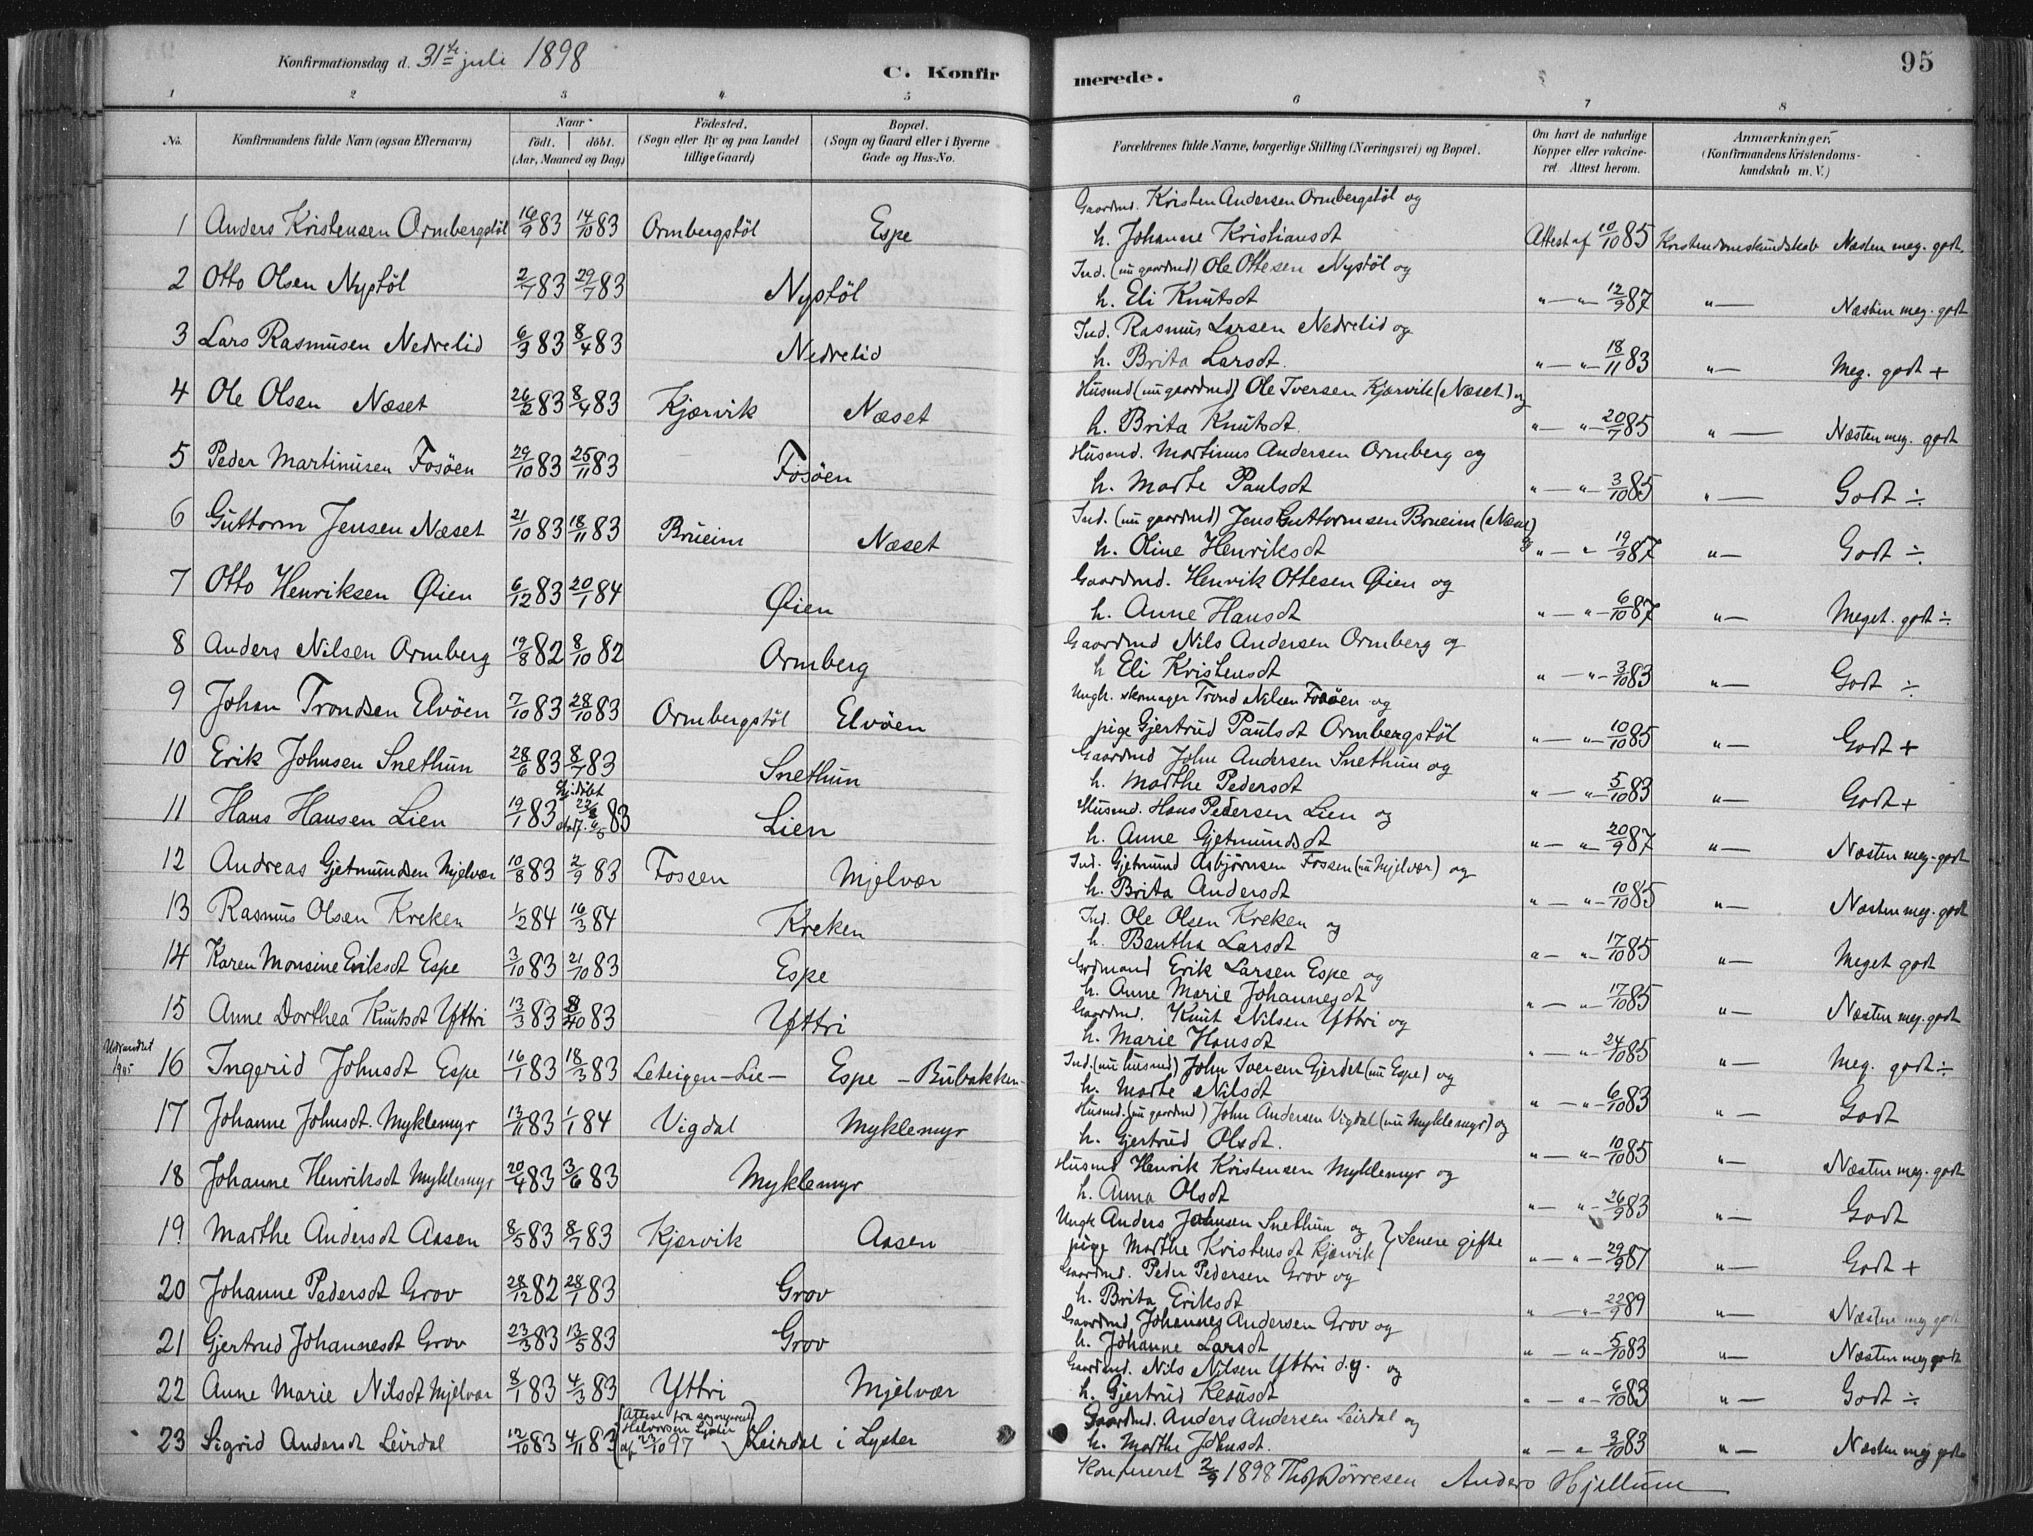 Konfirmationsdag d. 31te juli 1898
C. Konfirmerede.
95
1 2 3 4 5 6 7 8
No.
Konfirmandens fulde Navn (ogsaa Efternavn)
Naar
født. døbt.
(Aar, Maaned og Dag)
Fødested.
(Sogn eller By og paa Landet tillige Gaard)
Bopæl.
(Sogn og Gaard eller i Byerne Gade og Hus-No.
Forældrenes fulde Navne, borgerlige Stilling (Næringsvei) og Bopæl.
Om havt de naturlige Kopper eller vakcineret Attest herom.
Anmærkninger,
(Konfirmandens Kristendomskundskab m. V.)
1 Anders Kristensen Ormbergstøl 16/9 83 14/10 83 Ormbergstøl Espe Gaardmd. Kristen Andersen Ormbergstøl og
h. Johanne Kristiansdt Attest af 10/10 85 Kristendomskundskab Næsten meg. godt.
2 Otto Olsen Nystøl 2/7 83 29/7 83 Nystøl Ind. (nu gaardmd) Ole Ottesen Nystøl og
h. Eli Knutsdt " — " — 12/9 87 " — Næsten meg. godt
3 Lars Rasmusen Nedrelid 6/3 83 8/4 83 Nedrelid Ind. Rasmus Larsen Nedrelid og
h. Brita Larsdt. " — " — 18/11 83 " — Meg. godt +
4 Ole Olsen Næset 26/2 83 8/4 83 Kjærvik Næset Husmd (nu gaardmd) Ole Iversen Kjærvik (Næset) og
h. Brita Knutsdt. " — " — 20/7 85 " — Næsten meg. godt
5 Peder Martinusen Fosøen 29/10 83 25/11 83 Fosøen Husmd. Martinus Andersen Ormberg og
h. Marte Paulsdt " — " — 3/10 85 " — Godt ÷
6 Guttorm Jensen Næset 21/10 83 18/11 83 Brueim Næset Ind. (nu gaardmd) Jens Guttormsen Brueim (Næset) og
h. Oline Henriksdt " — " 19/9 87 " — Godt ÷
7 Otto Henriksen Øien 6/12 83 20/1 84 Øien Gaardmd. Henrik Ottesen Øien og
h. Anne Hansdt " — " — 6/10 87 " — Meget. godt ÷
8 Anders Nilsen Ormberg 19/8 82 8/10 82 Ormberg Gaardmd Nils Andersen Ormberg og
h Eli Kristensdt " — " — 3/10 83 " — Godt ÷
9 Johan Trondsen Elvøen 7/10 83 28/10 83 Ormbergstøl Elvøen Ungk. skomager Trond Nilsen Fosøen og
pige Gjertrud Paulsdt Ormbergstøl " — " — 10/10 85 " — Godt +
10 Erik Johnsen Snethun 28/6 83 8/7 83 Snethun Gaardmd John Andersen Snethun og
h. Marthe Pedersdt " — " — 5/10 83 " — Godt +
11 Hans Hansen Lien 19/1 83 Hj. døbt 22/2 stadf. 6/5 83 Lien Husmd. Hans Pedersen Lien og
h. Anne Gjetmundsdt " — " — 20/9 87 " — Næsten meg. godt
12 Andreas Gjetmundsen Mjelvær 10/8 83 2/9 83 Fossen Mjelvær Ind. Gjetmund Asbjørnsen Fossen (nu Mjelvær) og
h. Brita Andersdt " — " — 10/10 85 " — Næsten meg. godt
13 Rasmus Olsen Kreken 1/2 84 16/3 84 Kreken Ind. Ole Olsen Kreken og
h. Bentha Larsdt " — " — 17/10 85 " — Meget godt
14 Karen Monsine Eriksdt Espe 3/10 83 21/10 83 Espe Grdmand Erik Larsen Espe og
h. Anne Marie Johannesdt " — " — 17/10 85 " — Næsten meg. godt
15 Anne Dorthea Knutsdt Yttri 13/3 83 8/10 83 Yttri Gaardmd. Knut Nilsen Yttri og
h. Marie Hansdt " — " — 24/10 85 " — Meg. godt ÷
Udvandret 1905 16 Ingerid Johnsdt Espe 16/1 83 18/3 83 Leteigen - Lie - Espe - Bubakken - Ind. (nu husmd) John Iversen Gjerdet (nu Espe) og
h. Marte Nilsdt " — " — 6/10 83 " — Godt
17 Johanne Johnsdt. Myklemyr 13/11 83 1/1 84 Vigdal Myklemyr Husmd. (nu gaardmd) John Andersen Vigdal (nu Myklemyr) og
h. Gjertrud Olsdt. " — " — 10/10 85 " — Næsten meg. godt
18 Johanne Henriksdt Myklemyr 20/4 83 3/6 83 Myklemyr Husmd Henrik Kristensen Myklemyr og
h. Anna Olsdt " — " — 26/9 83 " — Godt
19 Marthe Andersdt Aasen 8/5 83 8/7 83 Kjærvik Aasen Ungk Anders Johnsen Snethun og } Senere gifte
pige Marthe Kristensdt Kjærvik " — " — 29/9 87 " — Godt +
20 Johanne Pedersdt Grov 28/12 82 28/1 83 Grov Gaardmd. Peder Pedersen Grov og
h. Brita Eriksdt " — " — 22/9 89 " — Næsten meg godt
21 Gjertrud Johannesdt Grov 23/3 83 13/5 83 Grov Gaardmd Johannes Andersen Grov og
h. Johanne Larsdt " — " — 5/10 83 " — Næsten meg godt
22 Anne Marie Nilsdt Mjelvær 8/1 83 4/3 83 Yttri Mjelvær Gaardmd. Nils Nilsen Yttri d.y. og
h. Gjertrud Klausdt " — " — 6/10 83 " — Godt ÷
23 Sigrid Andersdt Leirdal 12/10 83 4/11 83 (Attest fra sognepræst Halvorsen Lyster af 22/10 97) Leirdal i Lyster Gaardmd. Anders Andersen Leirdal og
h. Marthe Johnsdt. " — " — 3/10 83 " — Næsten meg godt
Konfereret 2/9 1898 Thos Dørresen Anders Hjellum